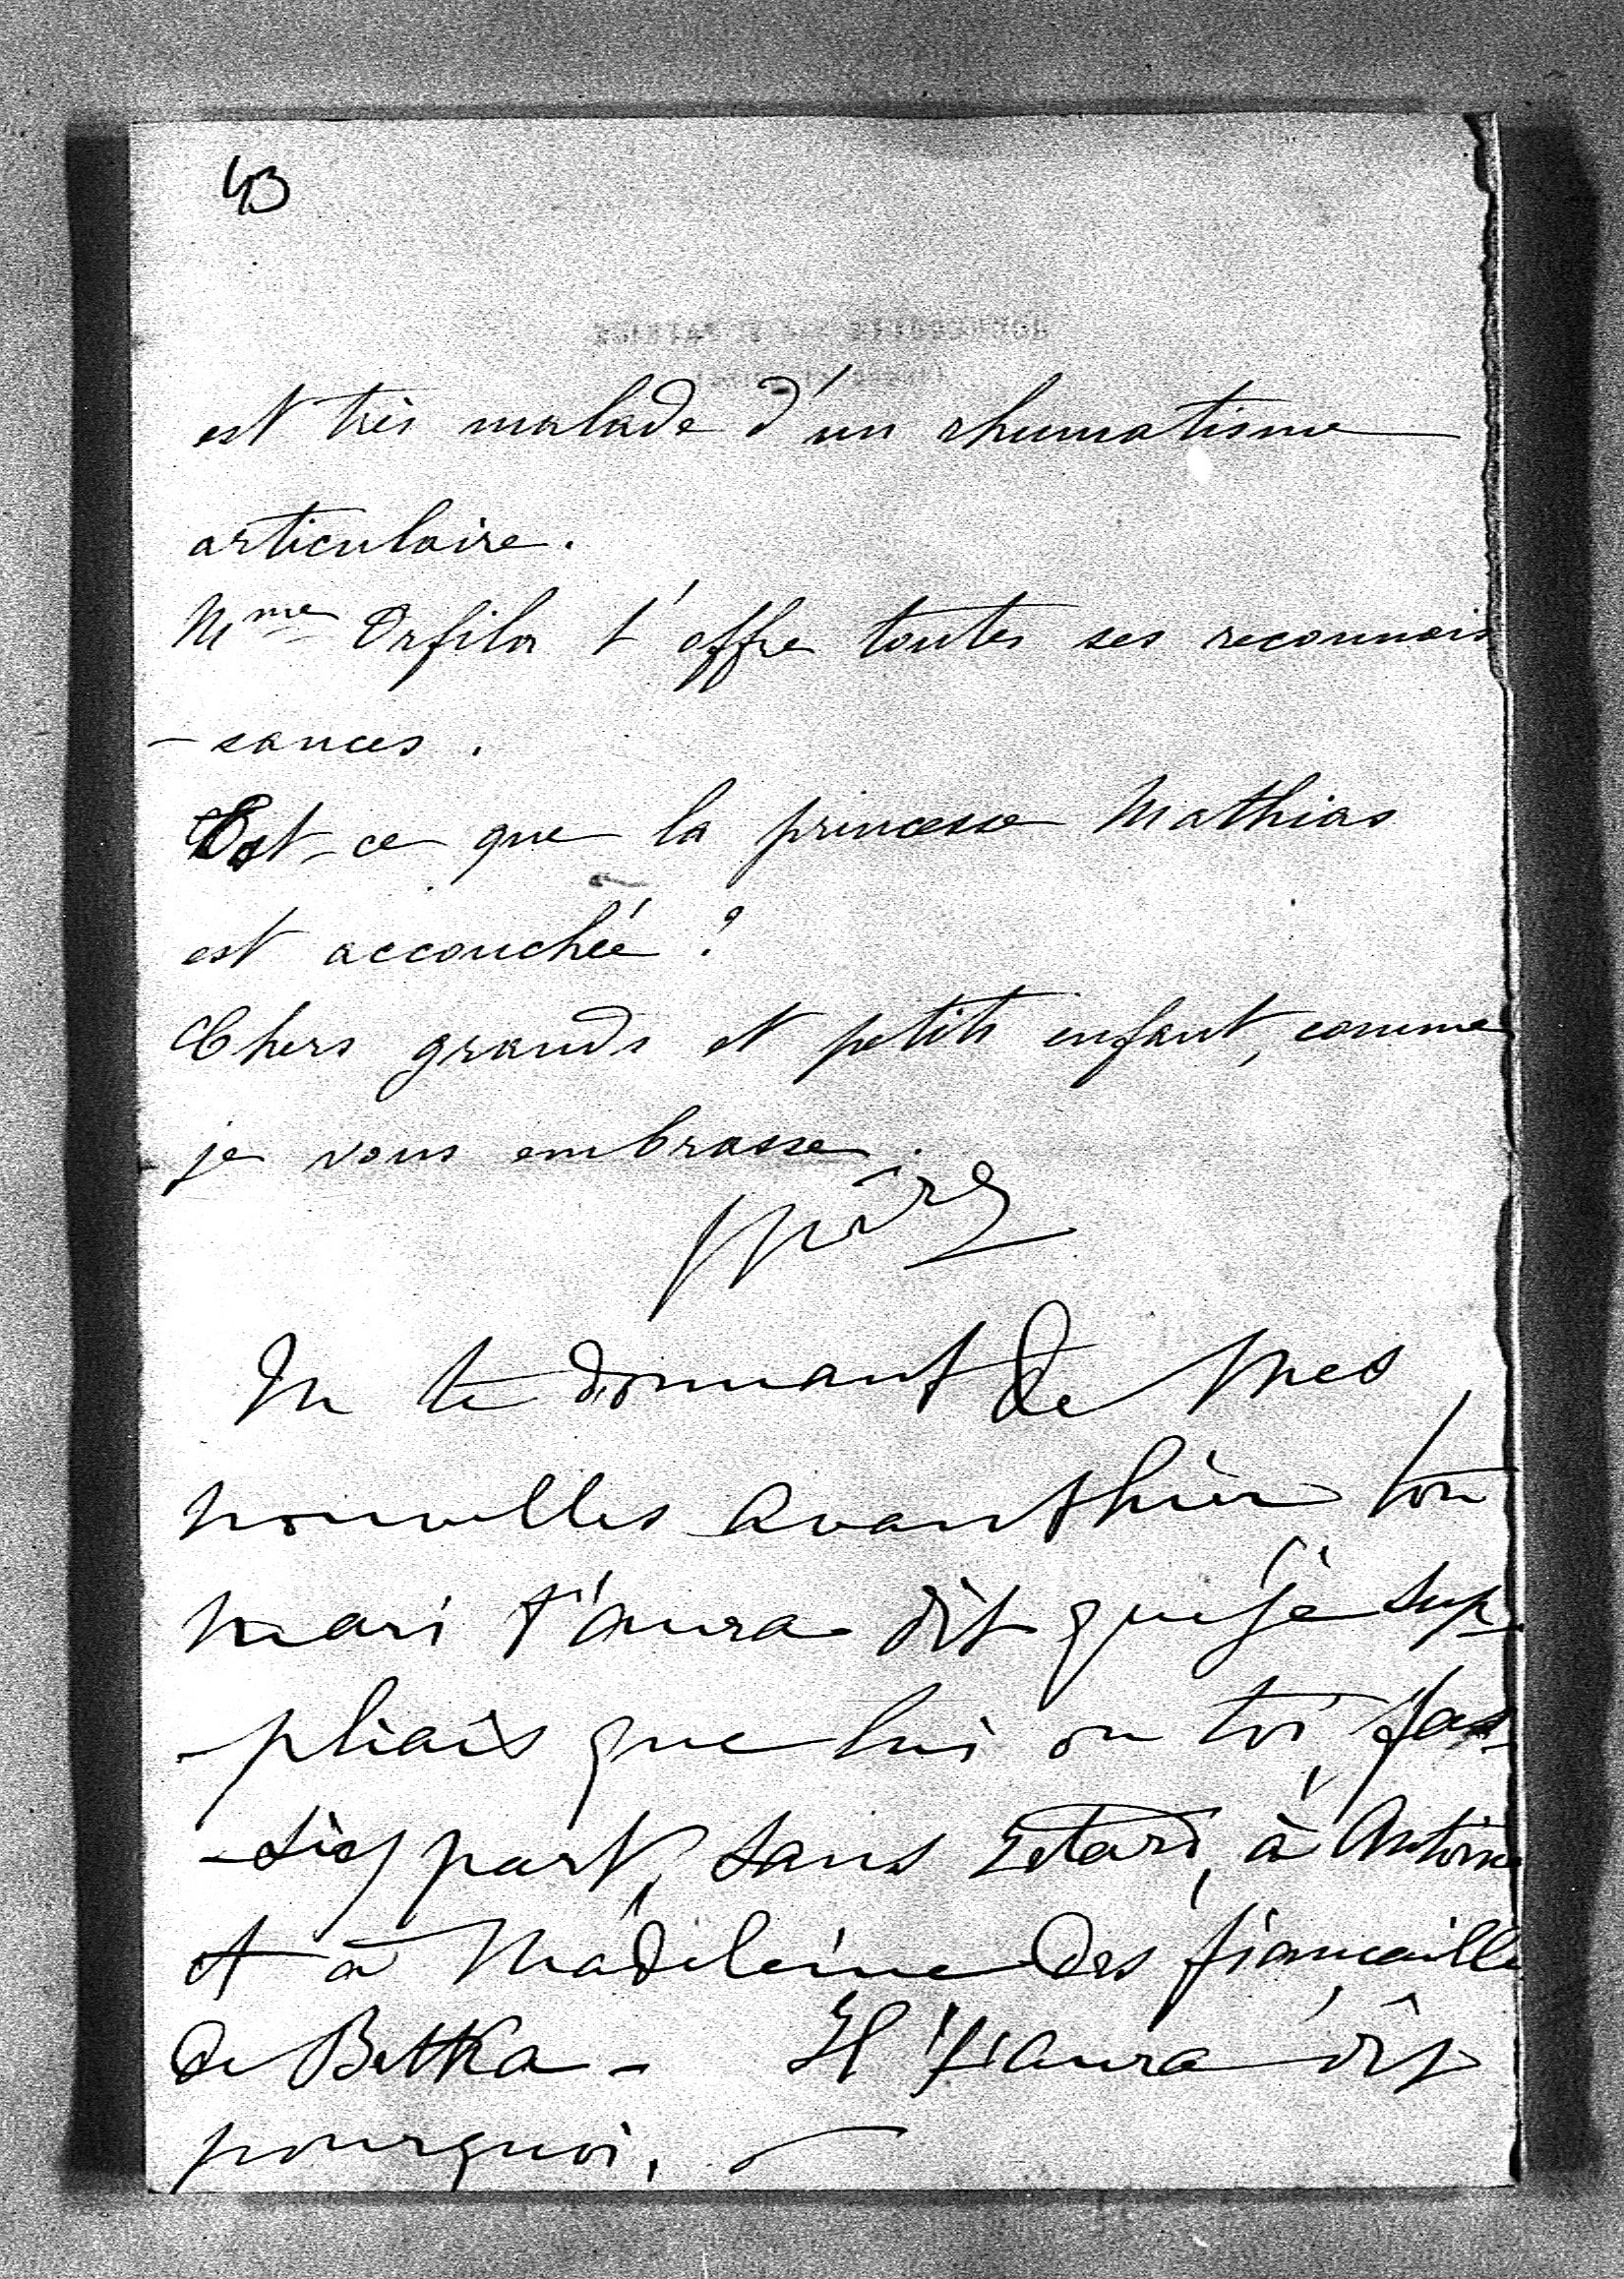 43
est très malade d'un rhumatisme
articulaire.
Mme Orfila t'offre toutes ses reconnais
-sances.
Est-ce que la princesse Mathias
est accouchée ?
Chers grands et petits enfant, comme
je vous embrasse.
En te donnant de mes
nouvelles avanthier ton
mari t'aura dit que je sup
-pliais que lui ou toi, fas
-siez part, sans retard, à Antoine
et à Madeleine des fiancaille
de Betka - Il t'aura dit
pourquoi.